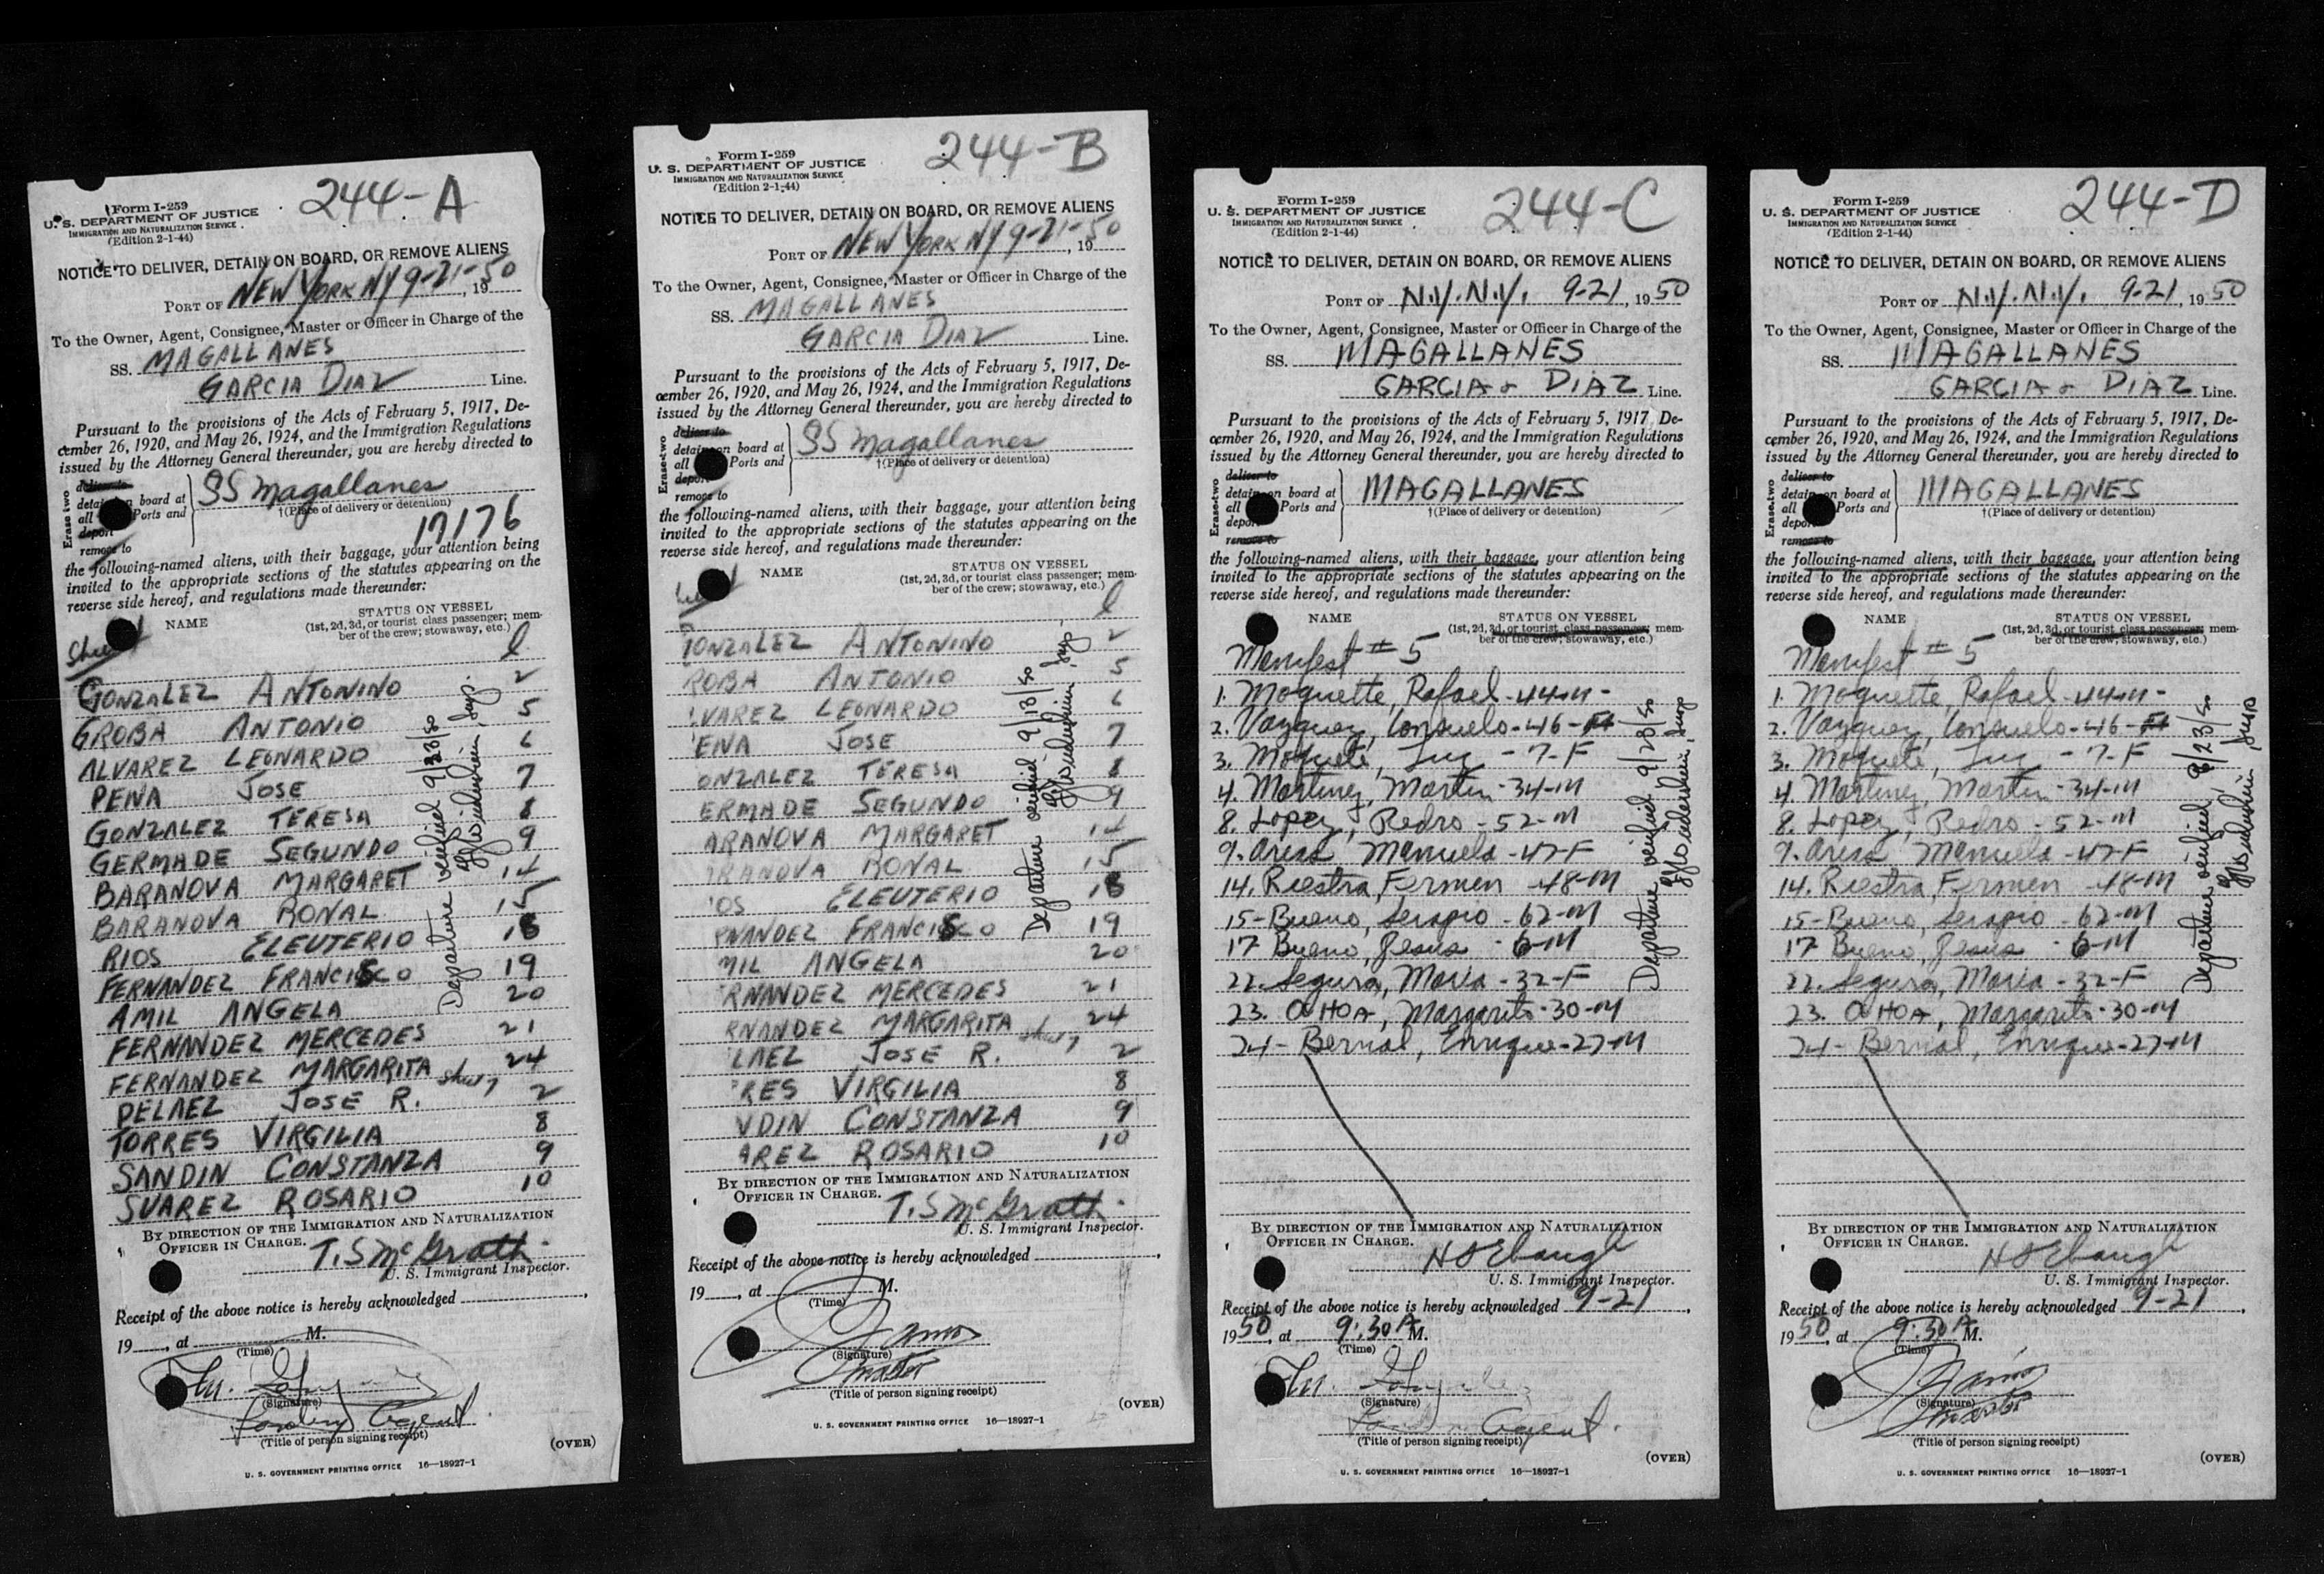 244-A
Form I-259
U. S. DEPARTMENT OF JUSTICE
IMMIGRATION AND NATURALIZATION SERVICE
(Edition 2-1-44)
NOTICE TO DELIVER, DETAIN ON BOARD, OR REMOVE ALIENS
PORT OF NEW YORK NY 9-21-50, 19
To the Owner, Agent, Consignee, Master or Officer in Charge of the
SS. MAGALLANES
GARCIA DIAZ Line.
Pursuant to the provisions of the Acts of February 5, 1917, De-
cember 26, 1920, and May 26, 1924, and the Immigration Regulations
issued by the Attorney General thereunder, you are hereby directed to
Erase two
deliver to
detain on board at
all Ports and
deport
remove to
SS Magallanes
†(Place of delivery or detention)
17176
the following-named aliens, with their baggage, your attention being
invited to the appropriate sections of the statutes appearing on the
reverse side hereof, and regulations made thereunder:
NAME
STATUS ON VESSEL
(1st, 2d, 3d, or tourist class passenger; mem-
ber of the crew; stowaway, etc.)
GONZALEZ ANTONINO 2
GROBA ANTONIO 5
ALVAREZ LEONARDO 6
PENA JOSE 7
GONZALEZ TERESA 8
GERMADE SEGUNDO 9
BARANOVA MARGARET 14
BARANOVA RONAL 15
RIOS ELEUTERIO 18
FERNANDEZ FRANCISCO 19
AMIL ANGELA 20
FERNANDEZ MERCEDES 21
FERNANDEZ MARGARITA 24
PELAEZ JOSE R. 2
TORRES VIRGILIA 8
SANDIN CONSTANZA 9
SUAREZ ROSARIO 10
Departure verified 9/23/50
Insp.
BY DIRECTION OF THE IMMIGRATION AND NATURALIZATION
OFFICER IN CHARGE.
T. S McGrath
U. S. Immigrant Inspector.
Receipt of the above notice is hereby acknowledged
19, at M.
(Time)
(Signature)
Agent
(Title of person signing receipt)
(OVER)
U. S. GOVERNMENT PRINTING OFFICE 16—18927-1
244-B
Form I-259
U. S. DEPARTMENT OF JUSTICE
IMMIGRATION AND NATURALIZATION SERVICE
(Edition 2-1-44)
NOTICE TO DELIVER, DETAIN ON BOARD, OR REMOVE ALIENS
PORT OF NEW YORK NY 9-21-50, 19
To the Owner, Agent, Consignee, Master or Officer in Charge of the
SS. MAGALLANES
GARCIA DIAZ Line.
Pursuant to the provisions of the Acts of February 5, 1917, De-
cember 26, 1920, and May 26, 1924, and the Immigration Regulations
issued by the Attorney General thereunder, you are hereby directed to
Erase two
deliver to
detain on board at
all Ports and
deport
remove to
SS Magallanes
†(Place of delivery or detention)
the following-named aliens, with their baggage, your attention being
invited to the appropriate sections of the statutes appearing on the
reverse side hereof, and regulations made thereunder:
NAME
STATUS ON VESSEL
(1st, 2d, 3d, or tourist class passenger; mem-
ber of the crew; stowaway, etc.)
ONZALEZ ANTONINO 2
ROBA ANTONIO 5
LVAREZ LEONARDO 6
ENA JOSE 7
ONZALEZ TERESA 8
ERMADE SEGUNDO 9
ARANOVA MARGARET 14
RANOVA RONAL 15
OS ELEUTERIO 18
RNANDEZ FRANCISCO 19
MIL ANGELA 20
RNANDEZ MERCEDES 21
RNANDEZ MARGARITA 24
LAEZ JOSE R. 2
RES VIRGILIA 8
NDIN CONSTANZA 9
AREZ ROSARIO 10
Departure verified 9/23/50
Insp.
BY DIRECTION OF THE IMMIGRATION AND NATURALIZATION
OFFICER IN CHARGE.
T. S McGrath
U. S. Immigrant Inspector.
Receipt of the above notice is hereby acknowledged
19, at M.
(Time)
(Signature)
Master
(Title of person signing receipt)
(OVER)
U. S. GOVERNMENT PRINTING OFFICE 16—18927-1
244-C
Form I-259
U. S. DEPARTMENT OF JUSTICE
IMMIGRATION AND NATURALIZATION SERVICE
(Edition 2-1-44)
NOTICE TO DELIVER, DETAIN ON BOARD, OR REMOVE ALIENS
PORT OF N.Y. N.Y. 9-21, 1950
To the Owner, Agent, Consignee, Master or Officer in Charge of the
SS. MAGALLANES
GARCIA & DIAZ Line.
Pursuant to the provisions of the Acts of February 5, 1917, De-
cember 26, 1920, and May 26, 1924, and the Immigration Regulations
issued by the Attorney General thereunder, you are hereby directed to
Erase two
deliver to
detain on board at
all Ports and
deport
remove to
MAGALLANES
†(Place of delivery or detention)
the following-named aliens, with their baggage, your attention being
invited to the appropriate sections of the statutes appearing on the
reverse side hereof, and regulations made thereunder:
NAME
STATUS ON VESSEL
(1st, 2d, 3d, or tourist class passenger; mem-
ber of the crew; stowaway, etc.)
Manifest # 5
1. Moquette, Rafael - 44-M -
2. Vazquez, Consuelo - 46 - F
3. Moquete, Luz - 7 - F
4. Martinez, Martin - 34-M
8. Lopez, Pedro - 52-M
9. Aries Manuela - 47-F
14. Riestra, Fermen - 48-M
15- Bueno, Serapio - 62-M
17 Bueno, Jesus - 6-M
22. Segura, Maria - 32-F
23. OCHOA, Margarito - 30-M
24- Bernal, Enrique - 27-M
Departure verified 9/23/50
Insp
BY DIRECTION OF THE IMMIGRATION AND NATURALIZATION
OFFICER IN CHARGE.
H S Ebaugh
U. S. Immigrant Inspector.
Receipt of the above notice is hereby acknowledged 9-21,
1950, at 9:30 A M.
(Time)
(Signature)
Agent.
(Title of person signing receipt)
(OVER)
U. S. GOVERNMENT PRINTING OFFICE 16—18927-1
244-D
Form I-259
U. S. DEPARTMENT OF JUSTICE
IMMIGRATION AND NATURALIZATION SERVICE
(Edition 2-1-44)
NOTICE TO DELIVER, DETAIN ON BOARD, OR REMOVE ALIENS
PORT OF N.Y. N.Y. 9-21, 1950
To the Owner, Agent, Consignee, Master or Officer in Charge of the
SS. MAGALLANES
GARCIA & DIAZ Line.
Pursuant to the provisions of the Acts of February 5, 1917, De-
cember 26, 1920, and May 26, 1924, and the Immigration Regulations
issued by the Attorney General thereunder, you are hereby directed to
Erase two
deliver to
detain on board at
all Ports and
deport
remove to
MAGALLANES
†(Place of delivery or detention)
the following-named aliens, with their baggage, your attention being
invited to the appropriate sections of the statutes appearing on the
reverse side hereof, and regulations made thereunder:
NAME
STATUS ON VESSEL
(1st, 2d, 3d, or tourist class passenger; mem-
ber of the crew; stowaway, etc.)
Manifest # 5
1. Moquette, Rafael - 44-M -
2. Vazquez, Consuelo - 46 - F
3. Moquete, Luz - 7 - F
4. Martinez, Martin - 34-M
8. Lopez, Pedro - 52-M
9. Aries Manuela - 47-F
14. Riestra, Fermen - 48-M
15- Bueno, Serapio - 62-M
17 Bueno, Jesus - 6-M
22. Segura, Maria - 32-F
23. OCHOA, Margarito - 30-M
24- Bernal, Enrique - 27-M
Departure verified 9/23/50
Insp
BY DIRECTION OF THE IMMIGRATION AND NATURALIZATION
OFFICER IN CHARGE.
H S Ebaugh
U. S. Immigrant Inspector.
Receipt of the above notice is hereby acknowledged 9-21,
1950, at 9:30 A M.
(Time)
(Signature)
Master
(Title of person signing receipt)
(OVER)
U. S. GOVERNMENT PRINTING OFFICE 16—18927-1